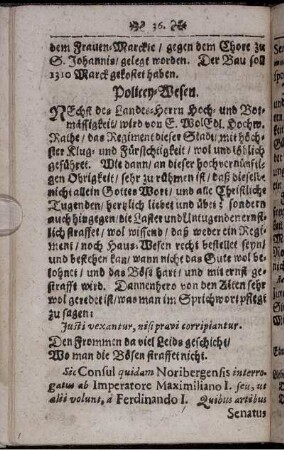 36.
dem Frauen-Marckte / gegen dem Chore zu
S. Johannis / gelegt worden. Der Bau soll
1310 Marck gekostet haben.
Policey-Wesen.
NEchst des Landes-Herrn Hoch- und Bot-
mässigkeit / wird von E. WolEdl. Hochw.
Rathe / das Regiment dieser Stadt / mit höch-
ster Klug- und Fürsichtigkeit / wol und löblich
geführet. Wie dann / an dieser hochvernünffti-
gen Obrigkeit / sehr zu rühmen ist / daß dieselbe
nicht allein Gottes Wort / und alle Christliche
Tugenden / hertzlich liebet und übet / sondern
auch hingegen / die Laster und Untugenden ernst-
lich straffet / wol wissend / daß weder ein Regi-
ment / noch Haus-Wesen recht bestellet seyn /
und bestehen kan / wann nicht das Gute wol be-
lohnet / und das Böse hart / und mit ernst ge-
strafft wird. Dannenhero von den Alten sehr
wol geredet ist / was man im Sprichwort pfleget
zu sagen:
Justi vexantur, nisi pravi corripiantur.
Den Frommen da viel Leids geschicht /
Wo man die Bösen straffet nicht.
Sic Consul quidam Noribergensis interro-
gatus ab Imperatore Maximiliano I. seu, ut
alii volunt, à Ferdinando I. Quibus artibus
Senatus